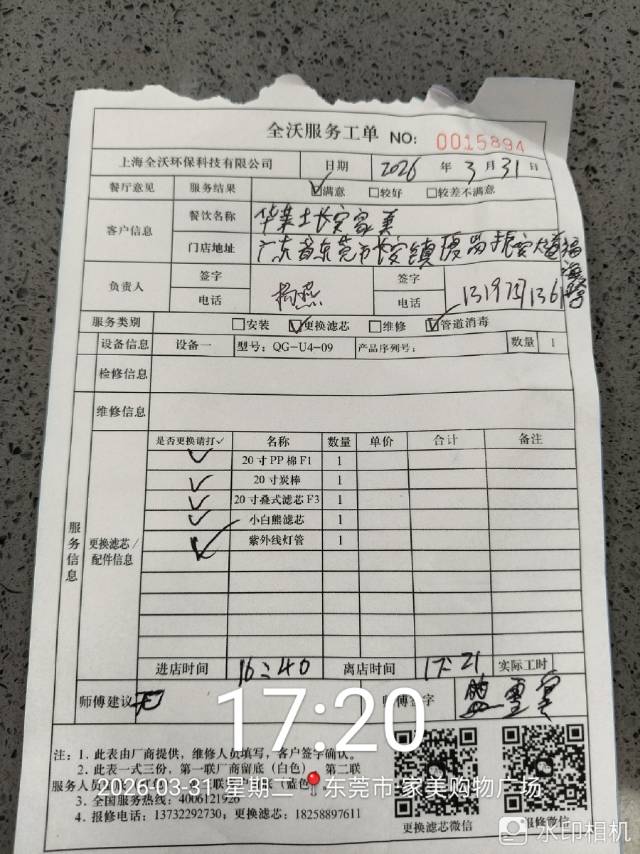 全沃服务工单 NO: 0015894
上海全沃环保科技有限公司 日期 2026 年 3 月 31 日
餐厅意见 服务结果 ☑满意 □较好 □较差不满意
客户信息 餐饮名称 华莱士长安家美
门店地址 广东省东莞市长安镇
负责人 签字 签字
电话 电话
服务类别 □安装 ☑更换滤芯 □维修 ☑管道消毒
设备信息 设备一 型号: QG-U4-09 产品序列号: 数量 1
检修信息
维修信息
服务信息 更换滤芯/配件信息
是否更换请打✓ 名称 数量 单价 合计 备注
✓ 20寸PP棉F1 1
✓ 20寸炭棒 1
✓ 20寸叠式滤芯F3 1
✓ 小白熊滤芯 1
✓ 紫外线灯管 1
进店时间 16:40 离店时间 17:21 实际工时
师傅建议 无 师傅签字
17:20
注: 1. 此表由厂商提供, 维修人员填写, 客户签字确认。
2. 此表一式三份, 第一联厂商留底（白色） 第二联
服务人员
2026-03-31 星期二 东莞市·家美购物广场
3. 全国服务热线: 4006121926
4. 报修电话: 13732292730, 更换滤芯: 18258897611
更换滤芯微信 报修微信
水印相机